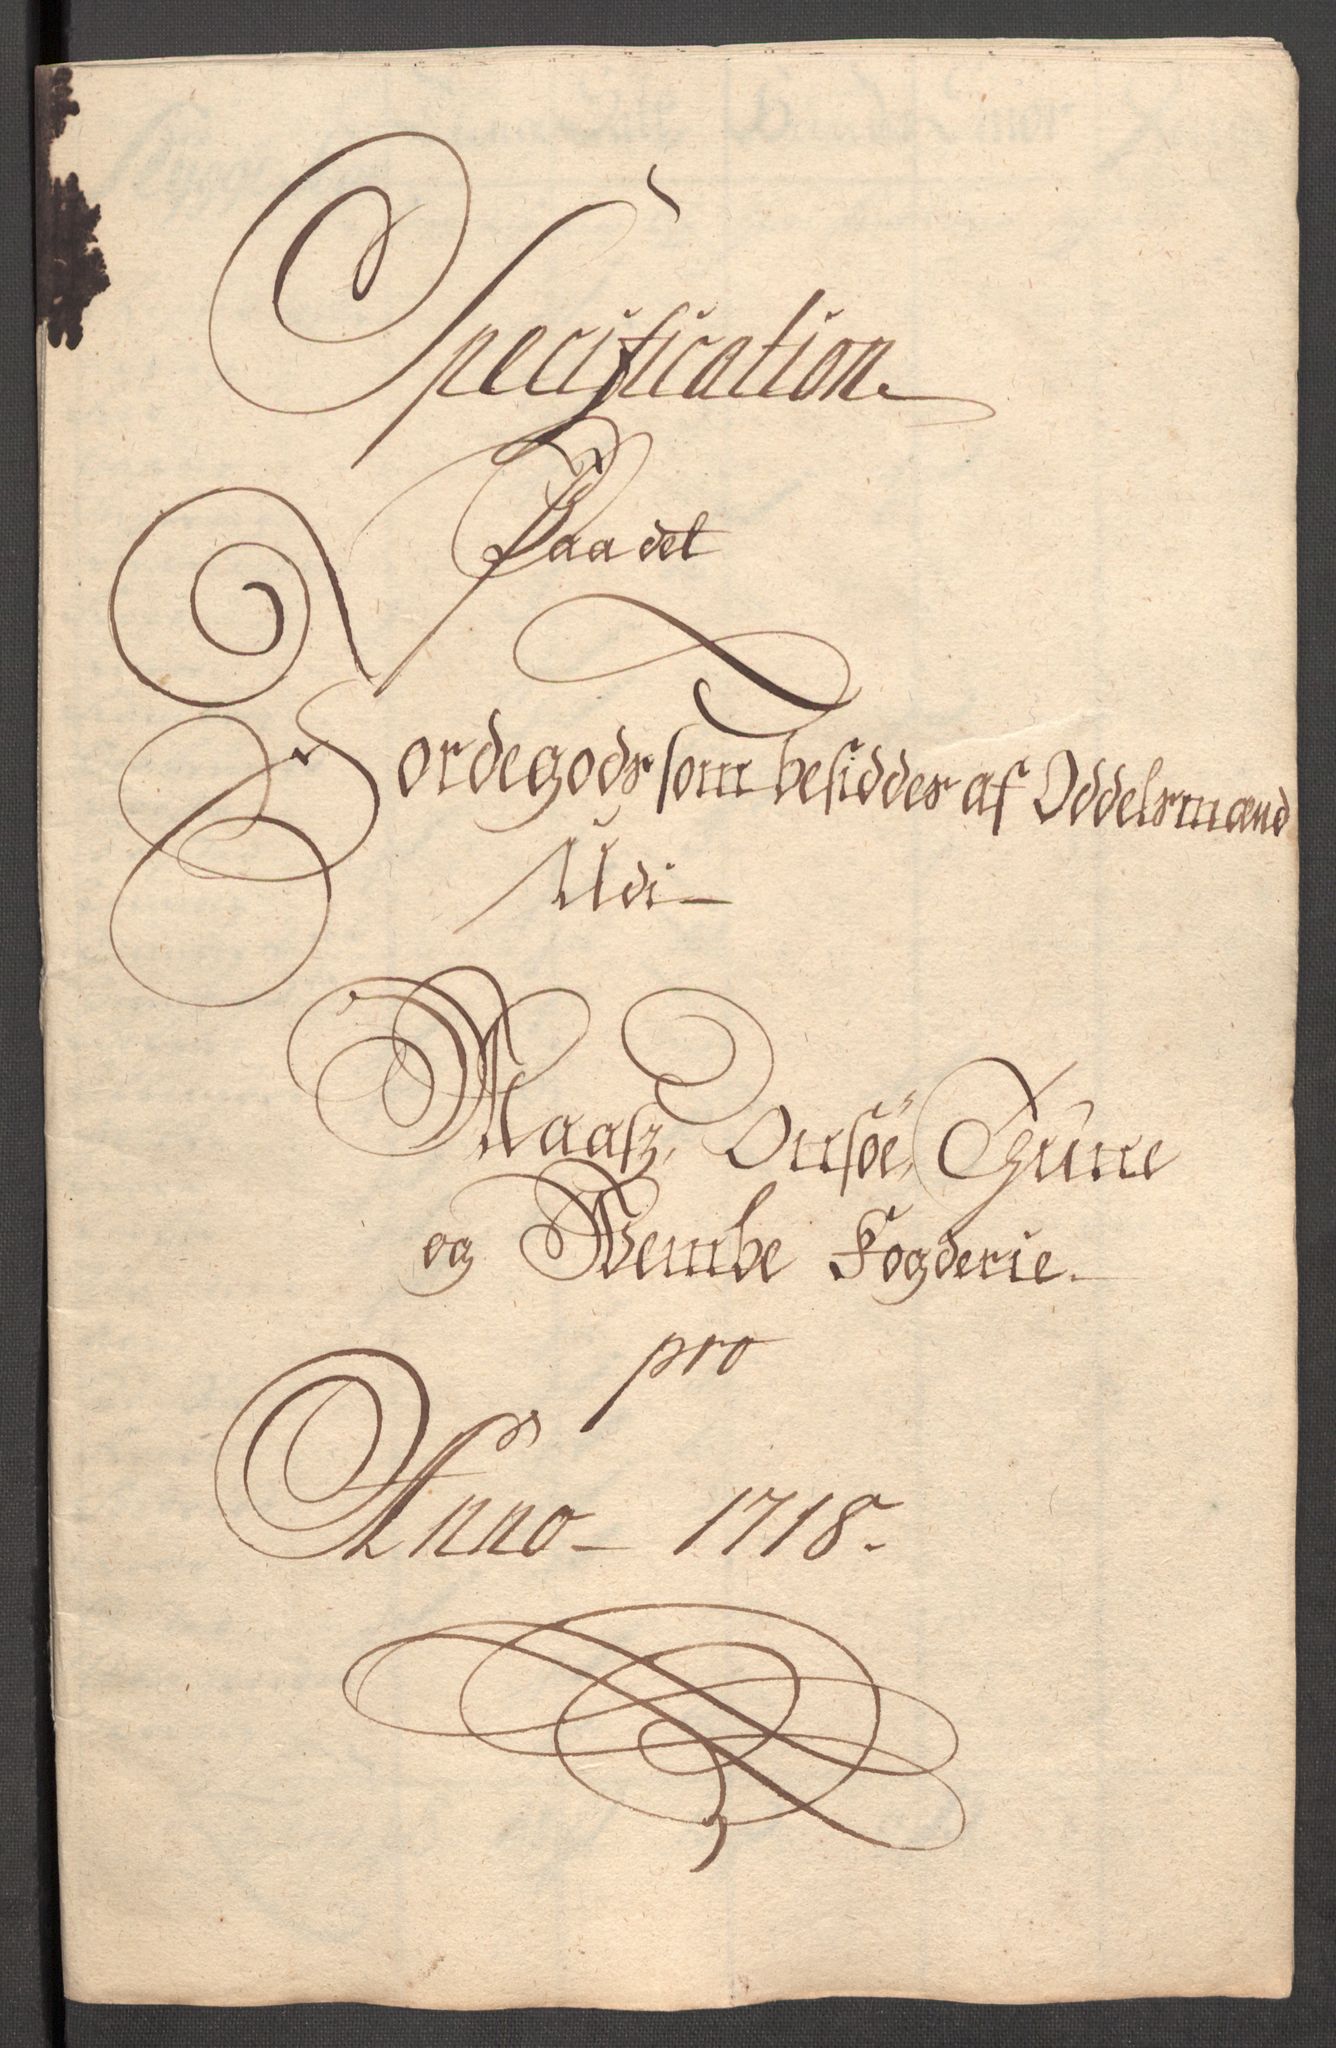 Specification
Paa det
Jordegods som besiddes af Oddelsmænd
Udi
Maasz, Onsöe, Thune
og Wembe Fogderie.
pro
Anno 1718.